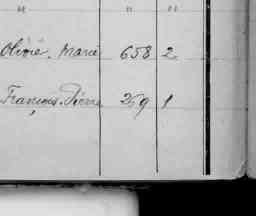 " " "
Olivié, Marie 658 2
François-Pierre 259 1